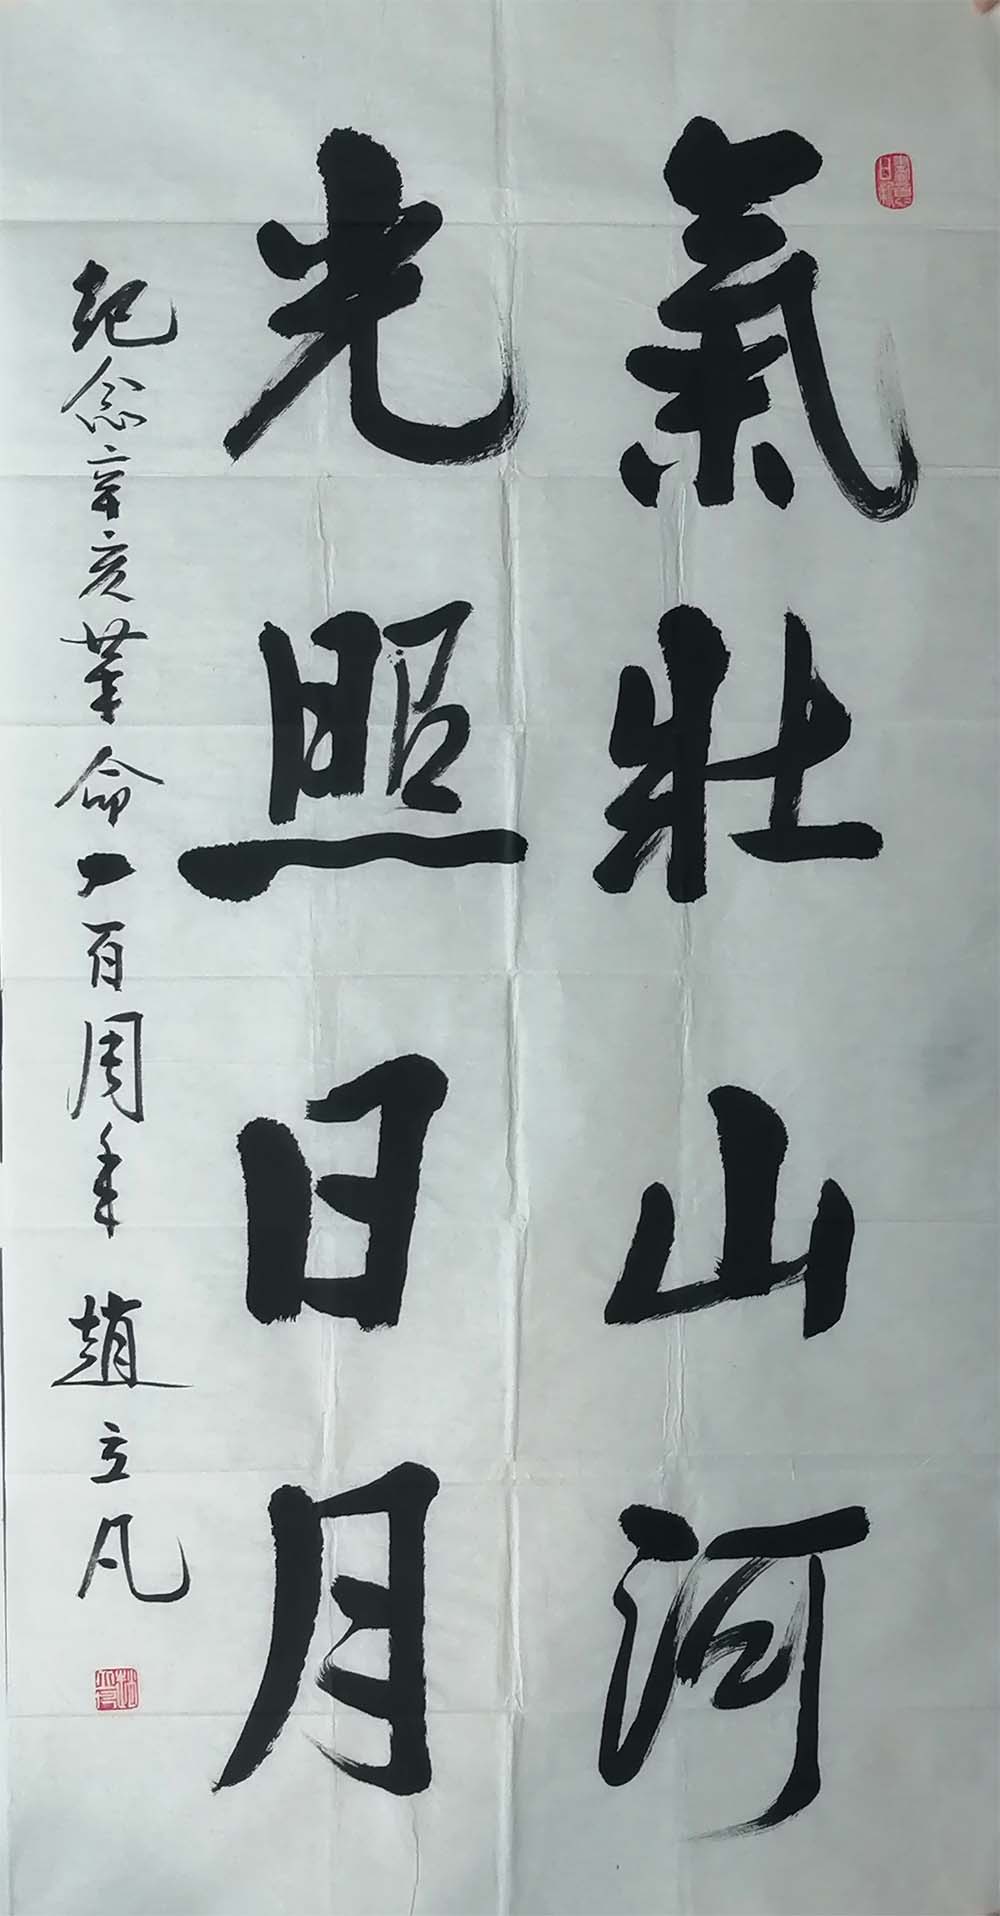 氣壯山河
光照日月
纪念辛亥革命一百周年 趙立凡